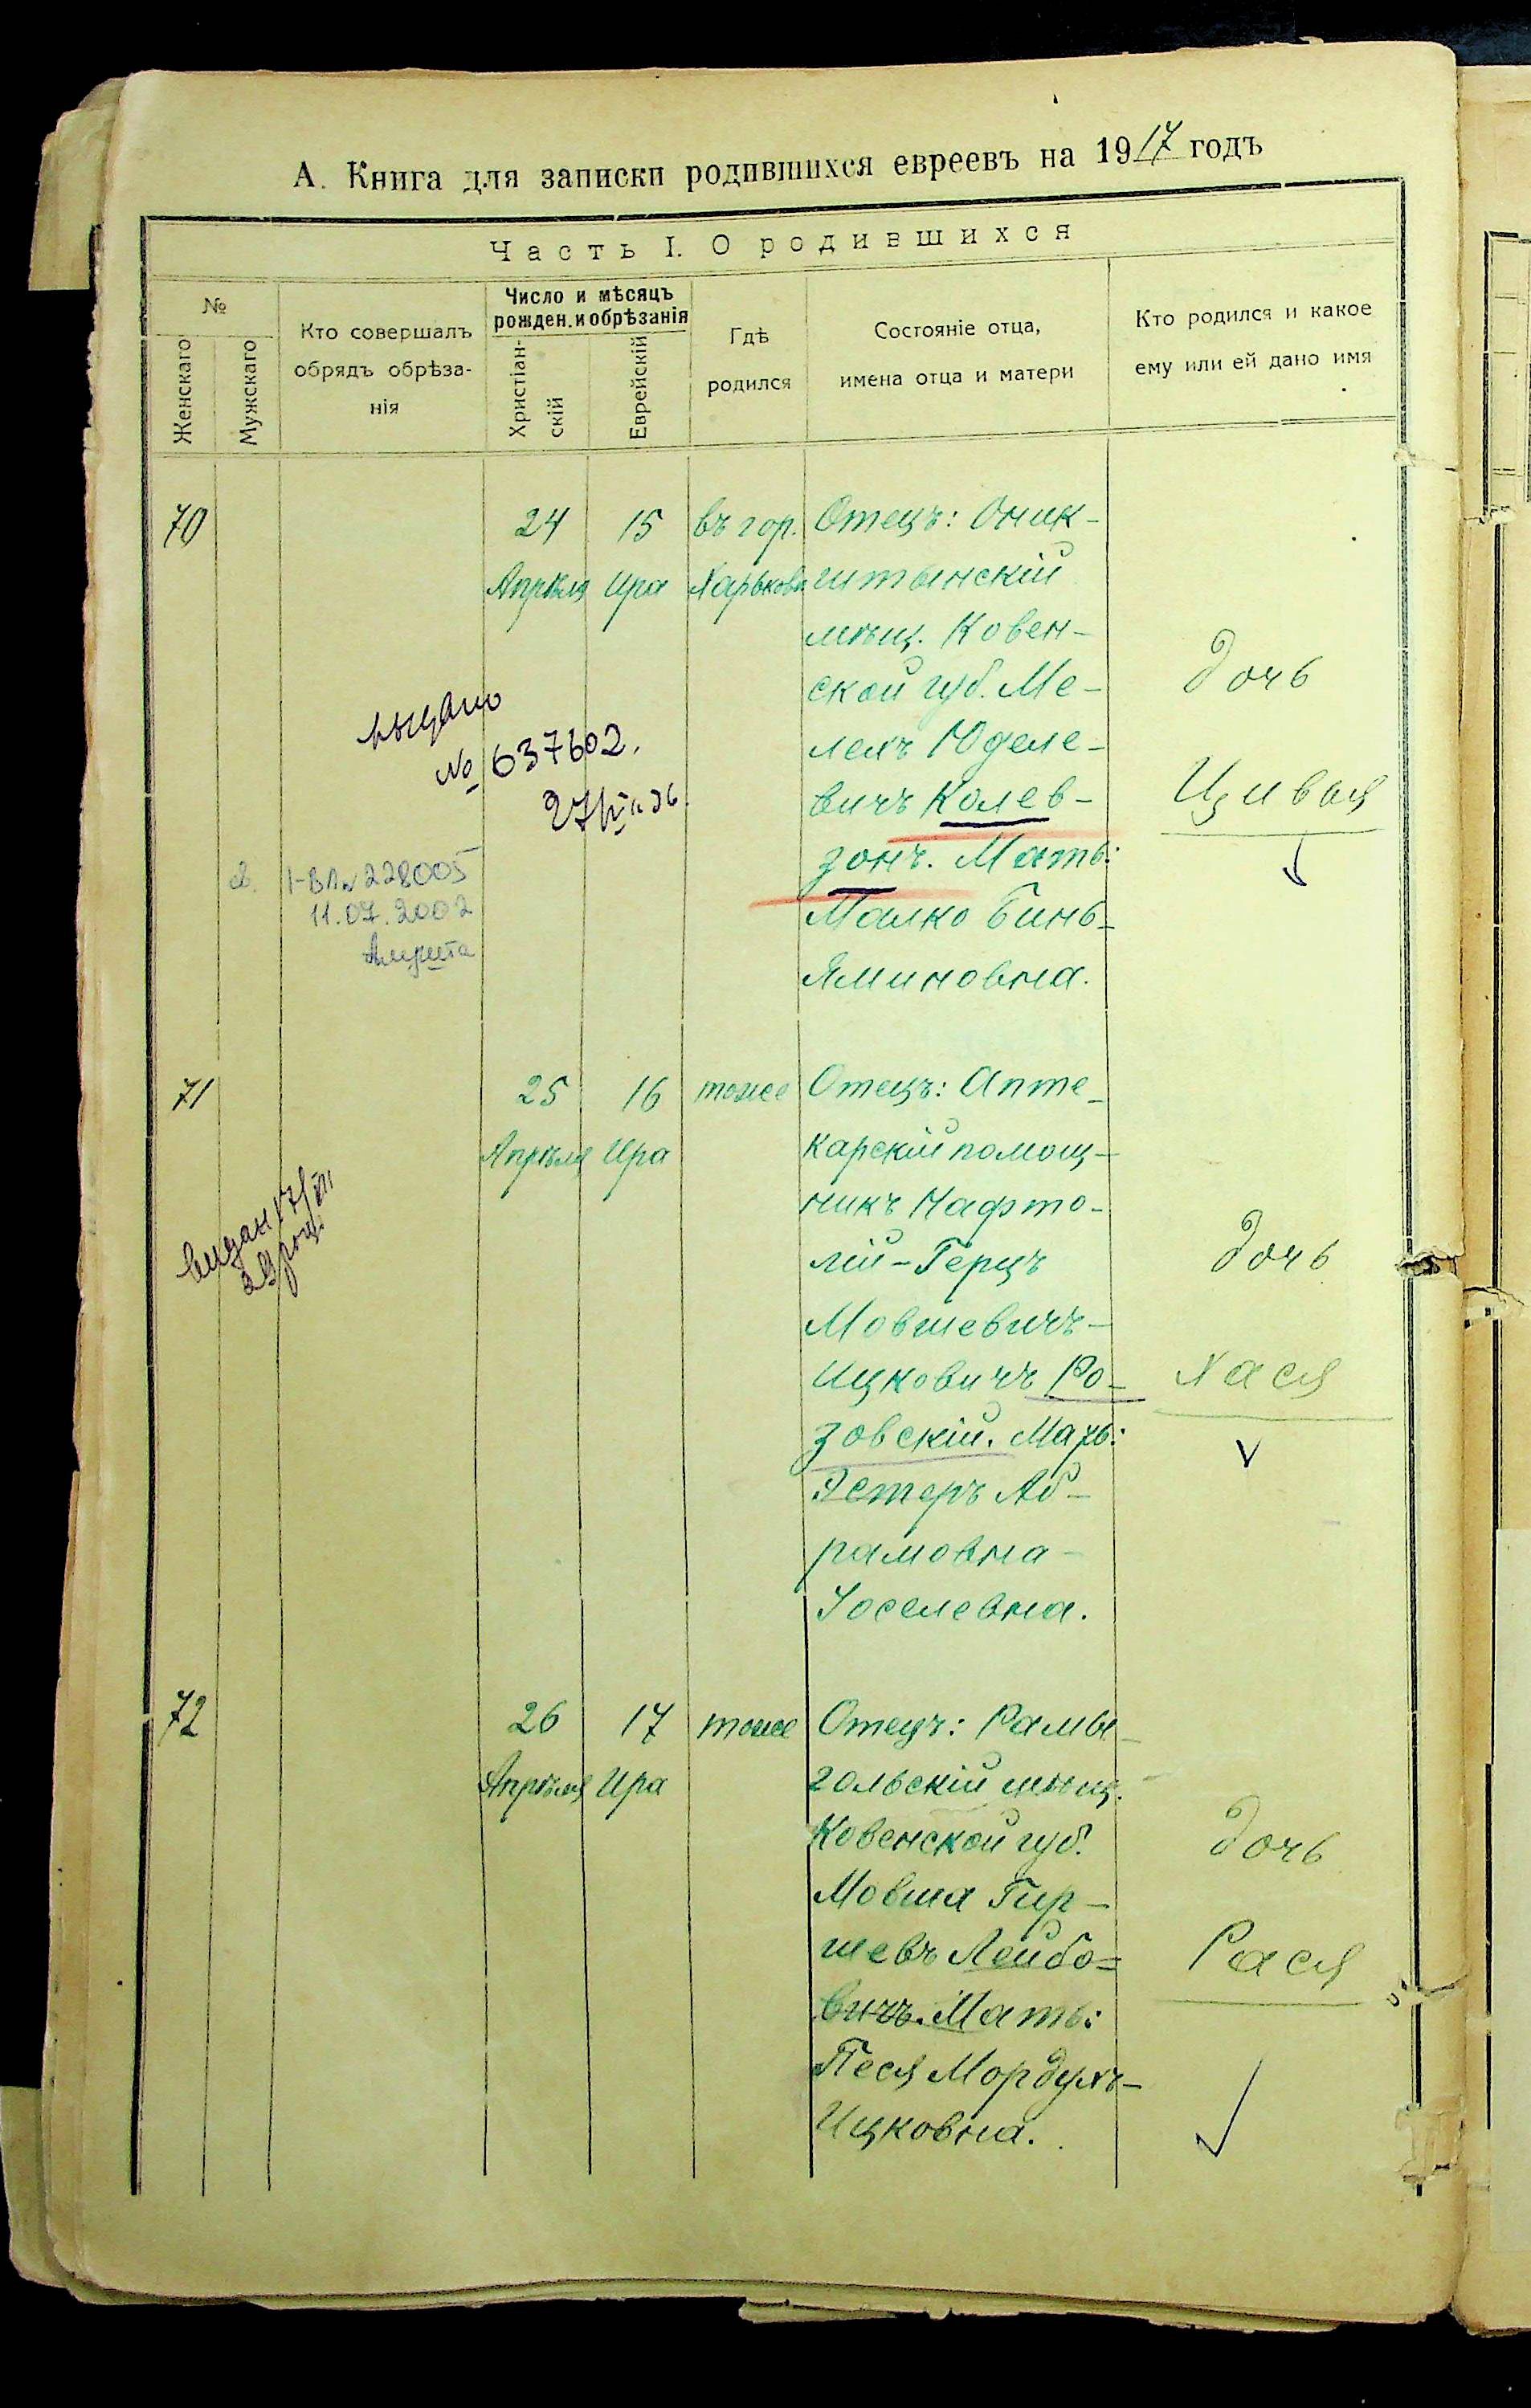 А. Книга для записки родившихся евреевъ на 1917 годъ
Часть I. О родившихся
№
Женскаго
Мужскаго
Кто совершалъ
обрядъ обрѣза-
нія
Число и мѣсяцъ
рожден. и обрѣзанія
Христіан-
скій
Еврейскій
Гдѣ
родился
Состояніе отца,
имена отца и матери
Кто родился и какое
ему или ей дано имя
70
24
Апрѣля
15
Ира
въ гор.
Харьковѣ
Отецъ: Оник-
штынскій
мѣщ. Ковен-
ской губ. Ме-
лехъ Юделе-
вичъ Колев-
зонъ. Мать:
Малко Бинь-
яминовна.
дочь
Цивья
№ 637602.
св. I-ВЛ № 228005
11.07.2002
71
25
Апрѣля
16
Ира
тоже
Отецъ: Апте-
карскій помощ-
никъ Нафто-
лій-Герцъ
Мовшевичъ-
Ицковичъ Ро-
зовскій. Мать:
Эстеръ Аб-
рамовна-
Іоселевна.
дочь
Хася
видан 17/VII
29 року
72
26
Апрѣля
17
Ира
тоже
Отецъ: Рамы-
гольскій мѣщ.
Ковенской губ.
Мовша Гир-
шевъ Лейбо-
вичъ. Мать:
Песя Мордухъ-
Ицковна.
дочь
Рася